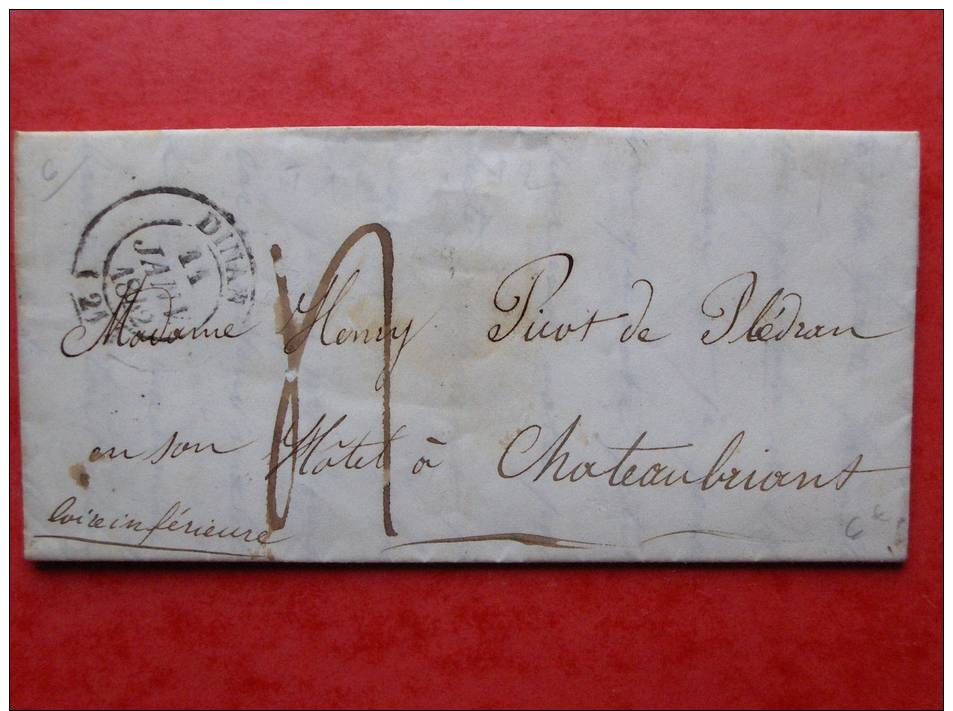 6/
DINAN
11
JANV
1842
(21)
4
Madame Henry Picot de Plédran
en son Hôtel à Chateaubriant
loire inférieure
6 €